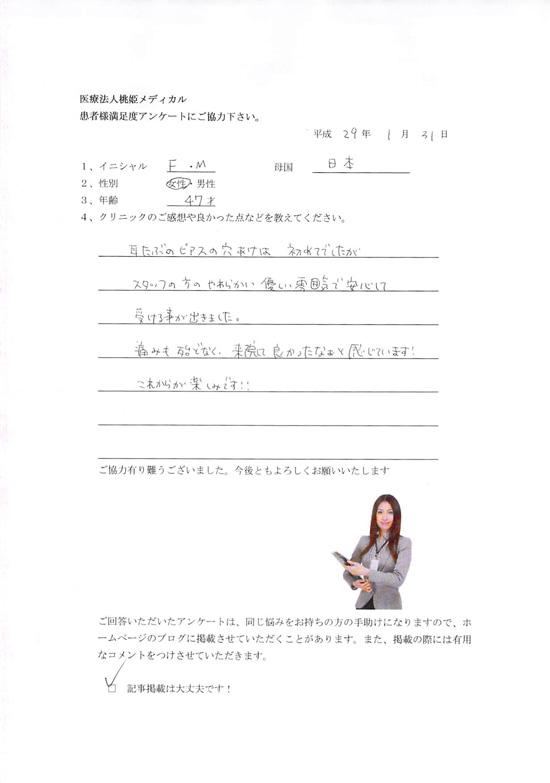 医療法人桃姫メディカル
患者様満足度アンケートにご協力下さい。
平成 29 年 1 月 31 日
1、イニシャル F.M 母国 日本
2、性別 女性・男性
3、年齢 47才
4、クリニックのご感想や良かった点などを教えてください。
耳たぶのピアスの穴あけは 初めてでしたが
スタッフの方のやわらかい優しい雰囲気で安心して
受ける事が出きました。
痛みも殆どなく、来院して良かったなぁと感じています!
これからが楽しみです!!
ご協力有り難うございました。今後ともよろしくお願いいたします
ご回答いただいたアンケートは、同じ悩みをお持ちの方の手助けになりますので、ホ
ームページのブログに掲載させていただくことがあります。また、掲載の際には有用
なコメントをつけさせていただきます。
☑ 記事掲載は大丈夫です！